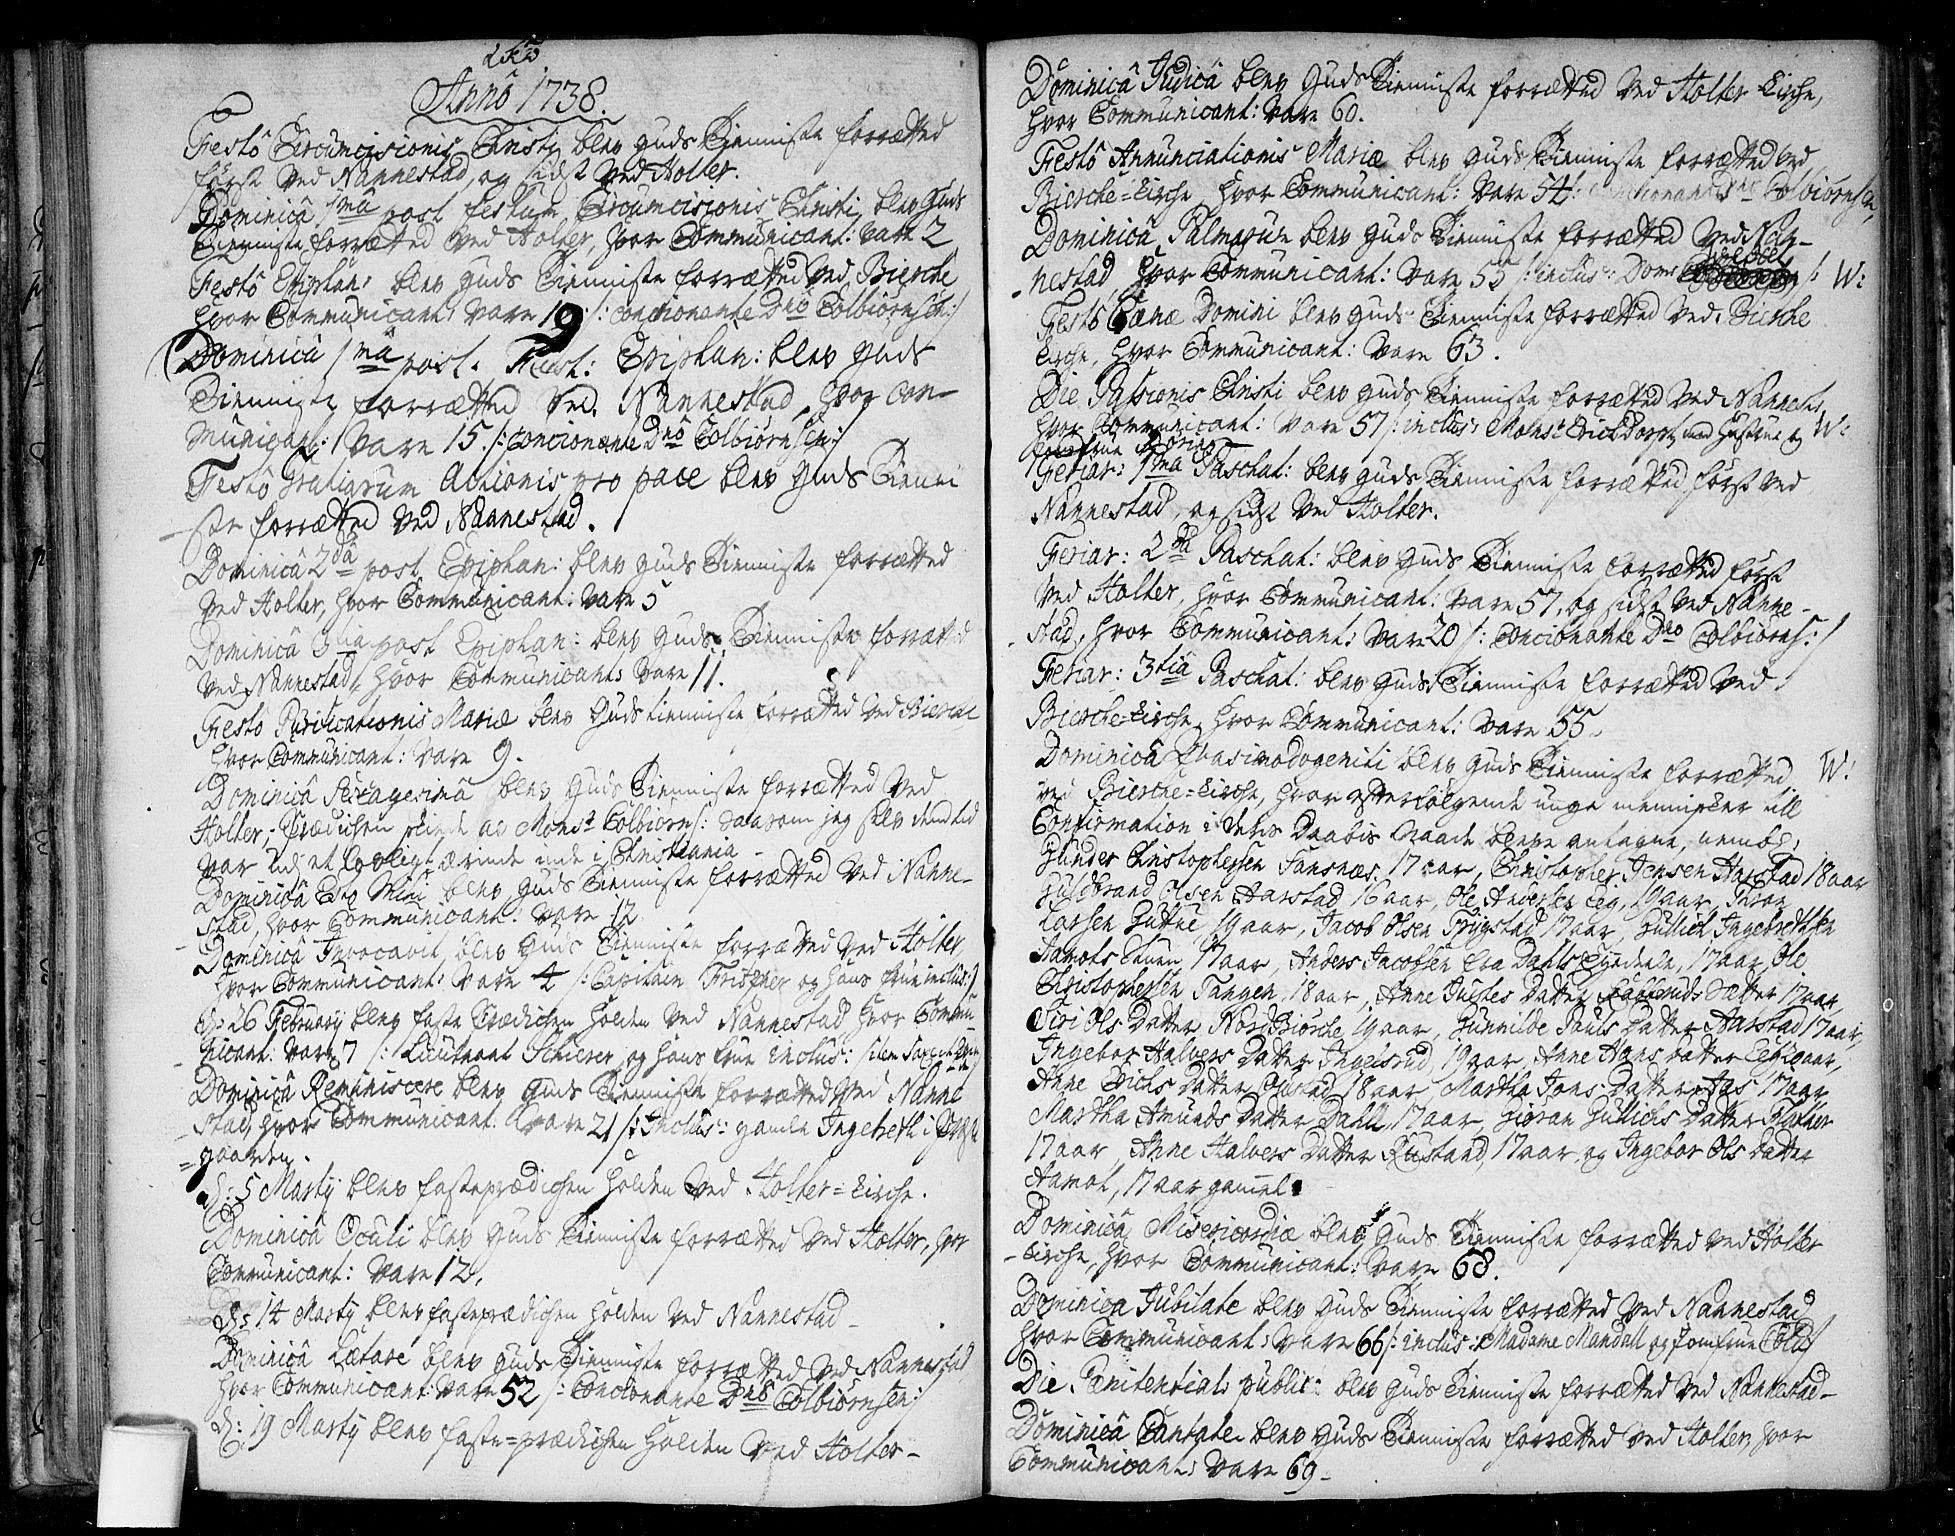 Anno 1738.
Festo Circumcisionis Christi blev Guds Tienniste forrætted
først ved Nannestad, og sidst ved Holter.
Dominica 1ma post festum Circumcisionis Christi blev Guds
Tienniste forrætted ved Holter, hvor Communicant: vare 2
Festo Epiphan: blev Guds Tienniste forrætted ved Bierche
hvor Communicant: vare 19 /: concionante Dno Colbiørnsen:/
Dominica 1ma post. Fest: Epiphan: blev Guds
Tienniste forrætted ved Nannestad, hvor Com-
municant: vare 15. /: concionante Dno Colbiørnsen:/
Festo Gratiarum Actionis pro pace blev Guds Tienni
ste forrætted ved Nannestad.
Dominica 2da post Epiphan: blev Guds Tienniste forrætted
ved Holter, hvor Communicant: vare 5
Dominica 3tia post Epiphan: blev Guds Tienniste forrætted
ved Nannestad, hvor Communicant: vare 11.
Festo Purificationis Mariæ blev Guds tienniste forrætted ved Bierche
hvor Communicant: vare 9.
Dominica Sexagesima blev Guds Tienniste forrætted ved
Holter, Prædichen skeede af Monsr Colbiørns: saasom jeg selv dend tid
var udj et lovligt ærinde inde i Christiania -
Dominica Esto Mihi blev Guds Tienniste forrætted ved Nanne-
stad, hvor Communicant: vare 12
Dominica Invocavit blev Guds Tienniste forrætted ved Holter,
hvor Communicant: vare 4 /: Capitain Frischer og hans frue inclus:/
d: 26 February blev faste Prædichen holden ved Nannestad hvor Commu-
nicant: vare 7 /: Lieutnant Schierer og hans frue inclus: item
Dominica Reminiscere blev Guds Tienniste forrætted ved Nanne
stad, hvor Communicant: vare 21 /: Inclus: gamle Ingebreth i
gaarden.
d: 5 Marty blev fasteprædichen holden ved Holter=Kirche.
Dominica Oculi blev Guds Tienniste forrætted ved Holter, hvor
Communicant: vare 12.
d: 14 Marty blev fasteprædichen holden ved Nannestad -
Dominica Lætare blev Guds Tienniste forrætted ved Nannestad
hvor Communicant: vare 52 /: Concionante Dno Colbiørnsen:/
d: 19 Marty blev faste=prædichen holden ved Holter -
Dominica Judica blev Guds Tienniste forrætted ved Holter Kirche,
hvor Communicant: vare 60.
Festo Annunciationis Mariæ blev Guds Tienniste forrætted ved
Bierche=Kirche, hvor Communicant: vare 54: concionante Dno Colbiørnsen,
Dominica Palmarum blev Guds Tienniste forrætted ved Nan-
nestad, hvor Communicant: vare 55 /: inclus: :/ W:
Festo Cænæ Domini blev Guds Tienniste forrætted ved Bierche
Kirche, hvor Communicant: vare 63.
Die Passionis Christi blev Guds Tienniste forrætted ved Nannestad
hvor Communicant: vare 57 /: inclus: Monsr Erich Dorph med Hustrue og W:
Jomfrue
Feriar: 1ma Paschat: blev Guds Tienniste forrætted først ved
Nannestad, og sidst ved Holter.
Feriar: 2da Paschat: blev Guds Tienniste forrætted først
ved Holter, hvor Communicant: vare 57, og sidst ved Nanne-
stad, hvor Communicant: vare 20 /: Concionante Dno Colbiørns:/
Feriar: 3tia Paschat: blev Guds Tienniste forrætted ved
Bierche=Kirche, hvor Communicant: vare 55.
Dominica Quasimodogeniti blev Guds Tienniste forrætted W:
ved Bierche=Kirche, hvor efterfølgende unge mennisker till
Confirmation i deres Daabis Naade bleve antagne, nemblig,
Gunder Christophersen Sansnæs, 17 aar, Christopher Jensen Aarstad 18 aar
Guldbrand Olsen Aarstad 16 aar, Ole Andersen Eeg, 19 aar, Thron
Larsen Gutue, 19 aar, Jacob Olsen Trygstad 17 aar, Gullich Ingebrethsen
Aamots Stuen, 17 aar, Anders Jacobsen fra Dahls Eyedeele, 17 aar, Ole
Christophersen Tangen, 18 aar, Anne Justes Datter Datter 17 aar,
Siri Ols Datter Nord Bierche, 19 aar, Gunnilde Pauls Datter Aarstad 17 aar,
Ingebor Halvers Datter Ingelsrud, 19 aar, Anne Hans Datter Eeg, aar,
Anne Erichs Datter 18 aar, Martha Jons Datter Aas, 17 aar
Martha Amunds Datter Dahll, 17 aar, Giøran Gullichs Datter
17 aar, Anne Halvers Datter Rustand, 17 aar, og Ingebor Ols Datter
Aamot, 17 aar gamel.
Dominica Misericordiæ blev Guds Tienniste forrætted ved Holter
Kirche, hvor Communicant: vare 68.
Dominica Jubilate blev Guds Tienniste forrætted ved Nannestad
hvor Communicant: vare 66 /: inclus: Madame Mandall og Jomfrue Cold:/
Die Pænitential: public: blev Guds Tienniste forrætted ved Nannestad -
Dominica Cantate blev Guds Tienniste forrætted ved Holter, hvor
Communicant: vare 69 -